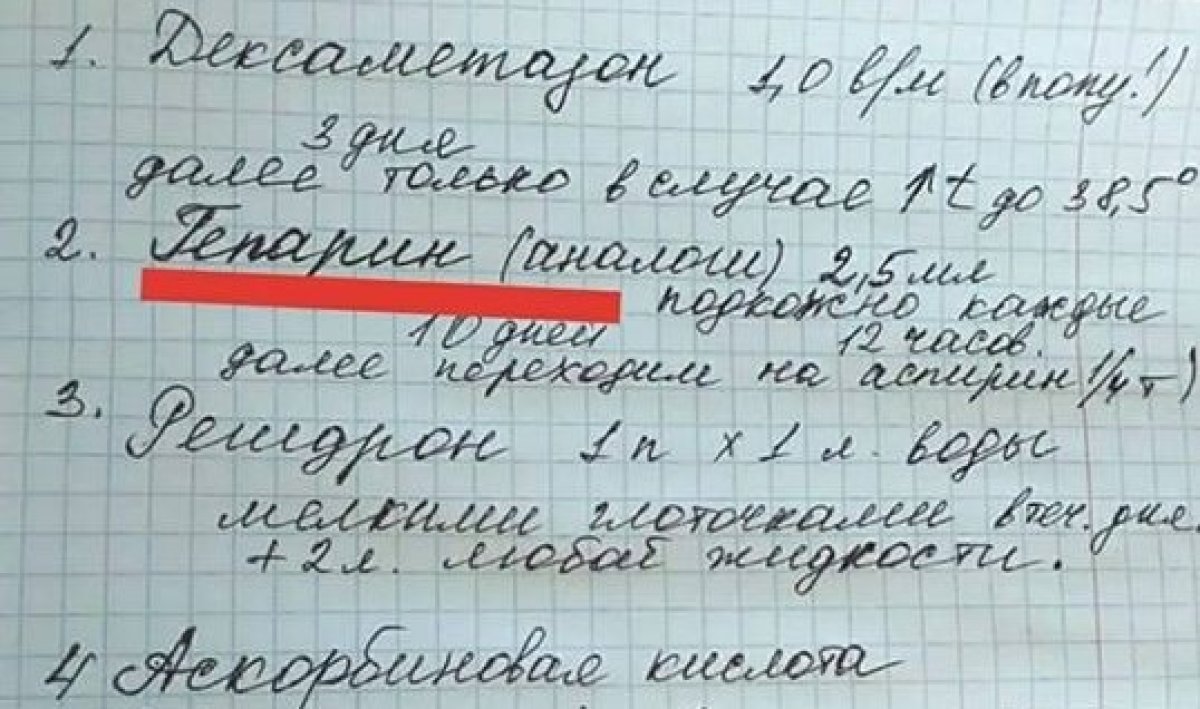 1. Дексаметазон 1,0 в/м (в попу!)
3 дня
далее только в случае ↑t до 38,5°
2. Гепарин (аналоги) 2,5 мл
подкожно каждые
10 дней 12 часов.
далее переходим на аспирин 1/4 т)
3. Регидрон 1 п x 1 л. воды
мелкими глоточками в теч. дня
+ 2 л. любой жидкости.
4 Аскорбиновая кислота